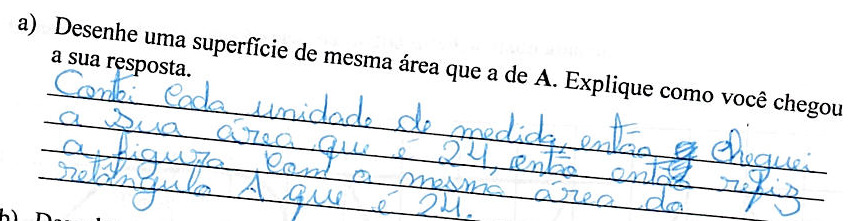 a) Desenhe uma superfície de mesma área que a de A. Explique como você chegou
a sua resposta.
Contei cada unidade de medida, então cheguei
a sua área que é 24, então então refiz
a figura com a mesma área do
retângulo A que é 24.
b)